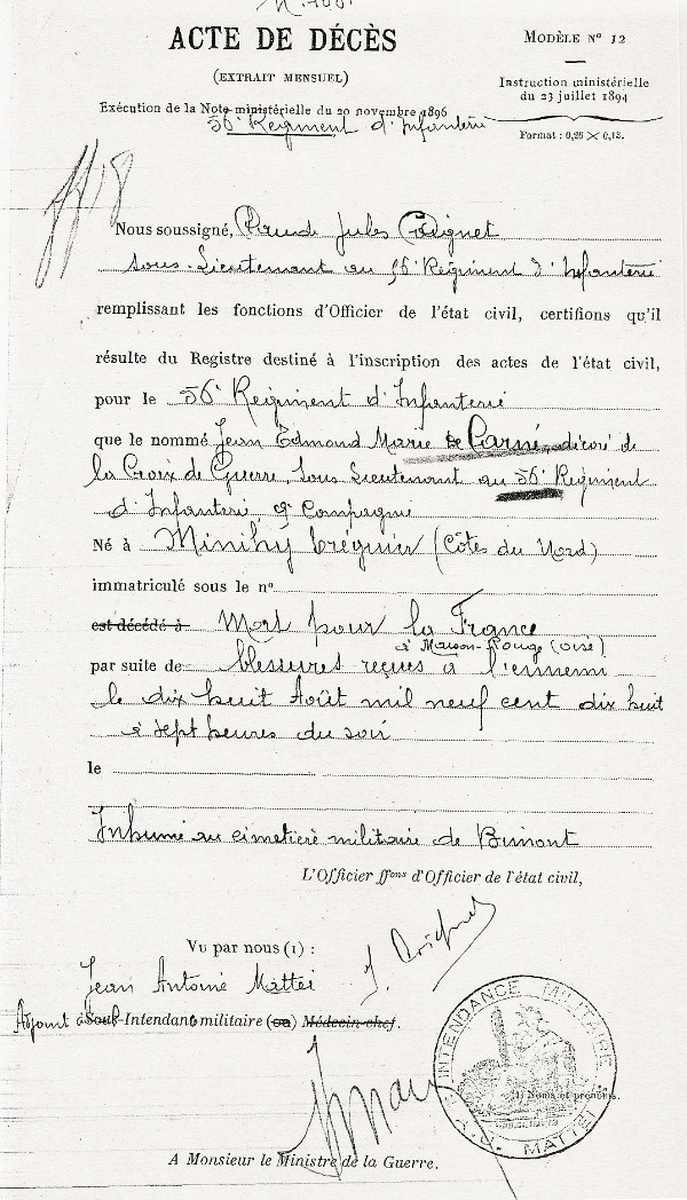 ACTE DE DÉCÈS
MODÈLE Nº 12
(EXTRAIT MENSUEL)
Instruction ministérielle
du 23 juillet 1894
Exécution de la Note ministérielle du 20 novembre 1896
56e Régiment d'Infanterie
Format : 0,26 × 0,18.
Nous soussigné, Claude Jules Coignet
Sous-Lieutenant au 56e Régiment d'Infanterie
remplissant les fonctions d'Officier de l'état civil, certifions qu'il
résulte du Registre destiné à l'inscription des actes de l'état civil,
pour le 56e Régiment d'Infanterie
que le nommé Jean Edmond Marie de Carné, décoré de
la Croix de Guerre, Sous Lieutenant au 56e Régiment
d'Infanterie 9e Compagnie
Né à Minihy Tréguier (Côtes du Nord)
immatriculé sous le nº
est décédé à Mort pour la France
à Maison-Rouge (Oise)
par suite de blessures reçues à l'ennemi
le dix huit Août mil neuf cent dix huit
à sept heures du soir
le
Inhumé au cimetière militaire de
L'Officier ffons d'Officier de l'état civil,
Vu par nous (1) :
J. Coignet
Jean Antoine Mattei
Adjoint à Sous-Intendant militaire (ou) Médecin-chef.
INTENDANCE MILITAIRE
J. A. MATTEI
(1) Noms et prénoms.
A Monsieur le Ministre de la Guerre.